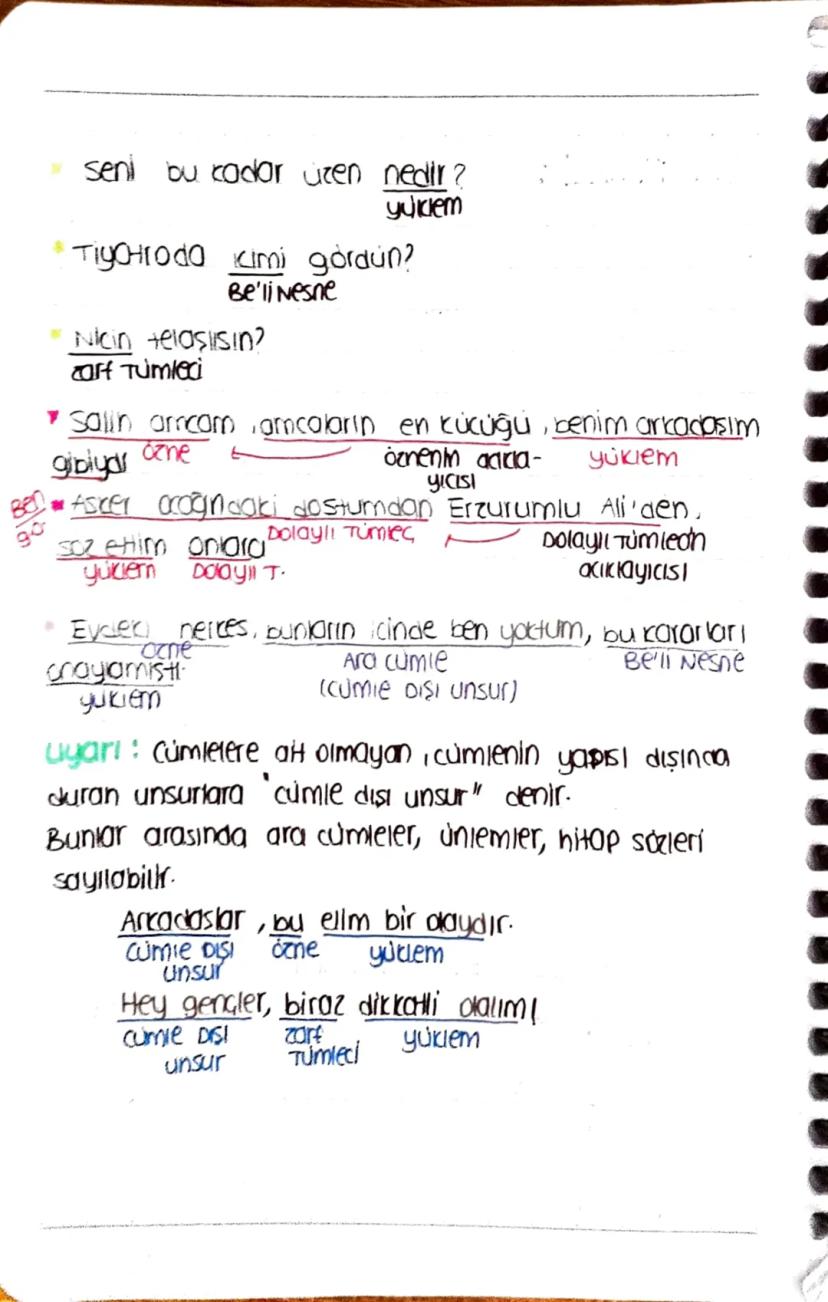 Seni bu kadar üzen nedir?
yüklem
* Tiyatroda kimi gördün?
Be'li Nesne
Niçin telaşlısın?
zarf Tümleci
Salih amcam, amcaların en küçüğü, benim arkadaşım
gibiydi özne öznenin açıkla- yüklem
yıcısı
Ben Asker ocağındaki dostumdan Erzurumlu Ali'den,
gö Dolaylı Tümleç Dolaylı Tümlecin
söz ettim onlara açıklayıcısı
yüklem Dolaylı T.
Evdeki herkes, bunların içinde ben yoktum, bu kararları
özne Ara cümle Be'li Nesne
onayamıştı. (cümle Dışı unsur)
yüklem
uyarı : Cümlelere ait olmayan, cümlenin yapısı dışında
duran unsurlara "cümle dışı unsur" denir.
Bunlar arasında ara cümleler, ünlemler, hitap sözleri
sayılabilir.
Arkadaşlar, bu elim bir olaydır.
cümle Dışı özne yüklem
unsur
Hey gençler, biraz dikkatli olalım!
cümle Dışı zarf yüklem
unsur Tümleci